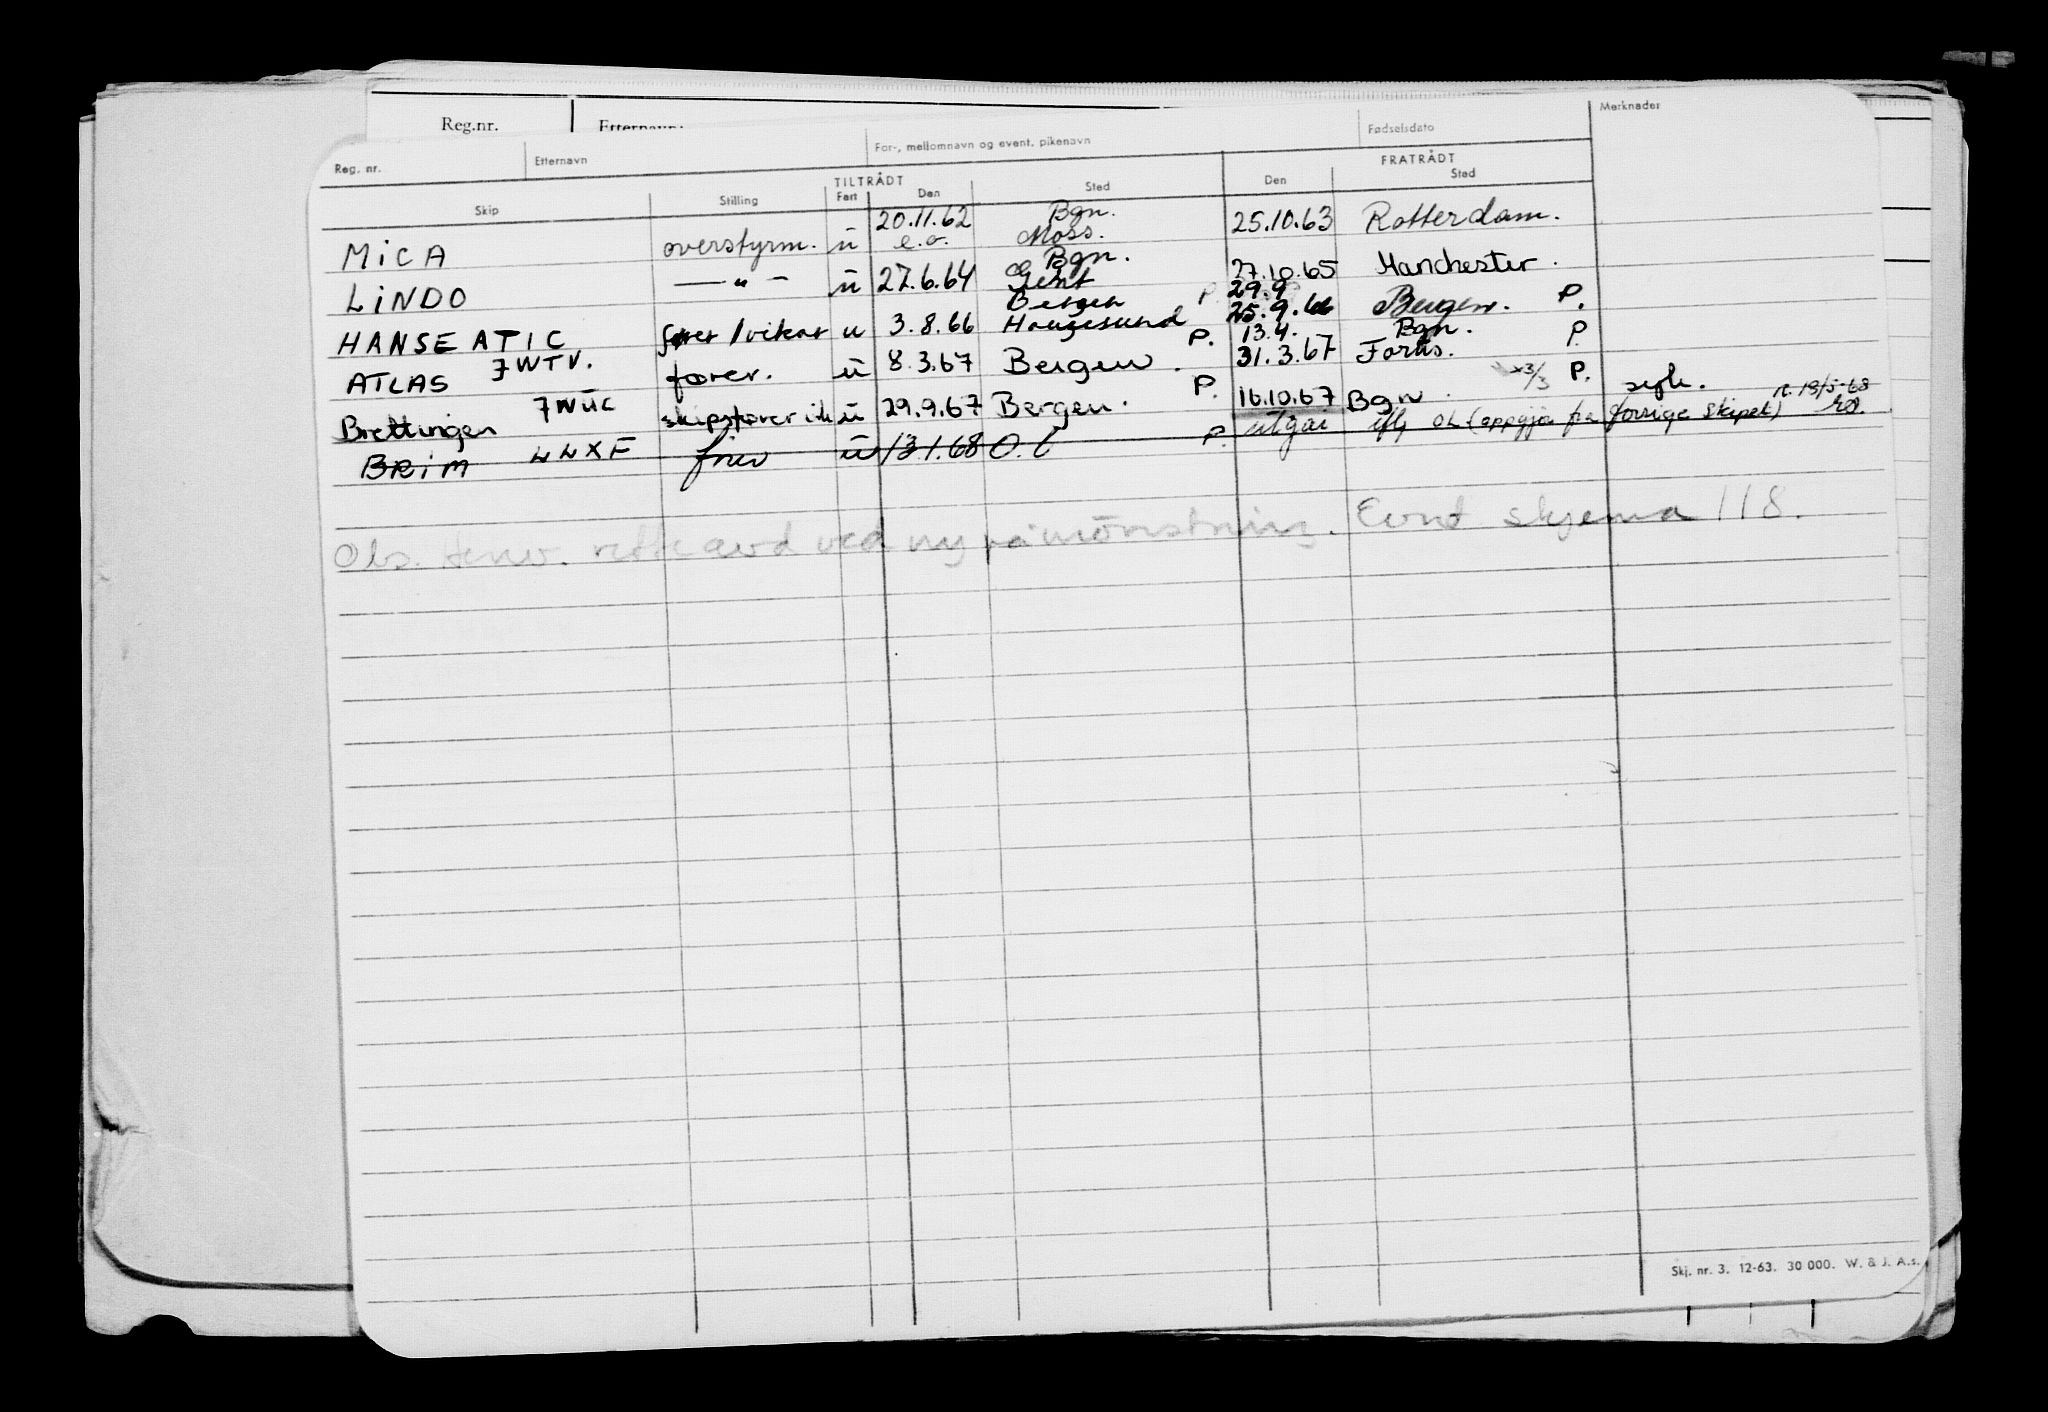 Reg.nr. Etternavn:
Reg. nr. Etternavn For-, mellomnavn og event. pikenavn Fødselsdato Merknader
TILTRÅDT FRATRÅDT
Skip Stilling Fart Den Sted Den Sted
20.11.62 Bgn.
MICA overstyrm. u e.o. Moss. 25.10.63 Rotterdam.
Bgn.
LINDO — " — u 27.6.64 Gent 27.10.65 Manchester.
Bergen P. 29.9 P.
HANSEATIC fører/vikar u 3.8.66 Haugesund 25.9.66 Bergen.
P. 13.4. Bgn. P.
ATLAS JWTV. fører. u 8.3.67 Bergen. 31.3.67 Forus.
P. x3/3 P. sygk.
Brettingen JWUC skipsfører u 29.9.67 Bergen. 16.10.67 Bgn. 
BRIM LLXF fører u 13.1.68 O.l P. utgår iflg OL (oppgjør fra forrige skipet) 13/5-68
Obs. Henv. rette avd ved ny påmönstring. Evnt skjema 118.
Skj. nr. 3. 12-63. 30 000. W. & J. A.s.